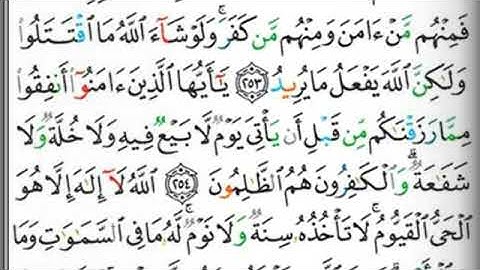 فَمِنْهُم مَّنْ ءَامَنَ وَمِنْهُم مَّن كَفَرَ ۚ وَلَوْ شَآءَ ٱللَّهُ مَا ٱقْتَتَلُوا۟
وَلَـٰكِنَّ ٱللَّهَ يَفْعَلُ مَا يُرِيدُ ٢٥٣ يَـٰٓأَيُّهَا ٱلَّذِينَ ءَامَنُوٓا۟ أَنفِقُوا۟
مِمَّا رَزَقْنَـٰكُم مِّن قَبْلِ أَن يَأْتِىَ يَوْمٌ لَّا بَيْعٌ فِيهِ وَلَا خُلَّةٌ وَلَا
شَفَـٰعَةٌ ۗ وَٱلْكَـٰفِرُونَ هُمُ ٱلظَّـٰلِمُونَ ٢٥٤ ٱللَّهُ لَآ إِلَـٰهَ إِلَّا هُوَ
ٱلْحَىُّ ٱلْقَيُّومُ ۚ لَا تَأْخُذُهُۥ سِنَةٌ وَلَا نَوْمٌ ۚ لَّهُۥ مَا فِى ٱلسَّمَـٰوَٰتِ وَمَا